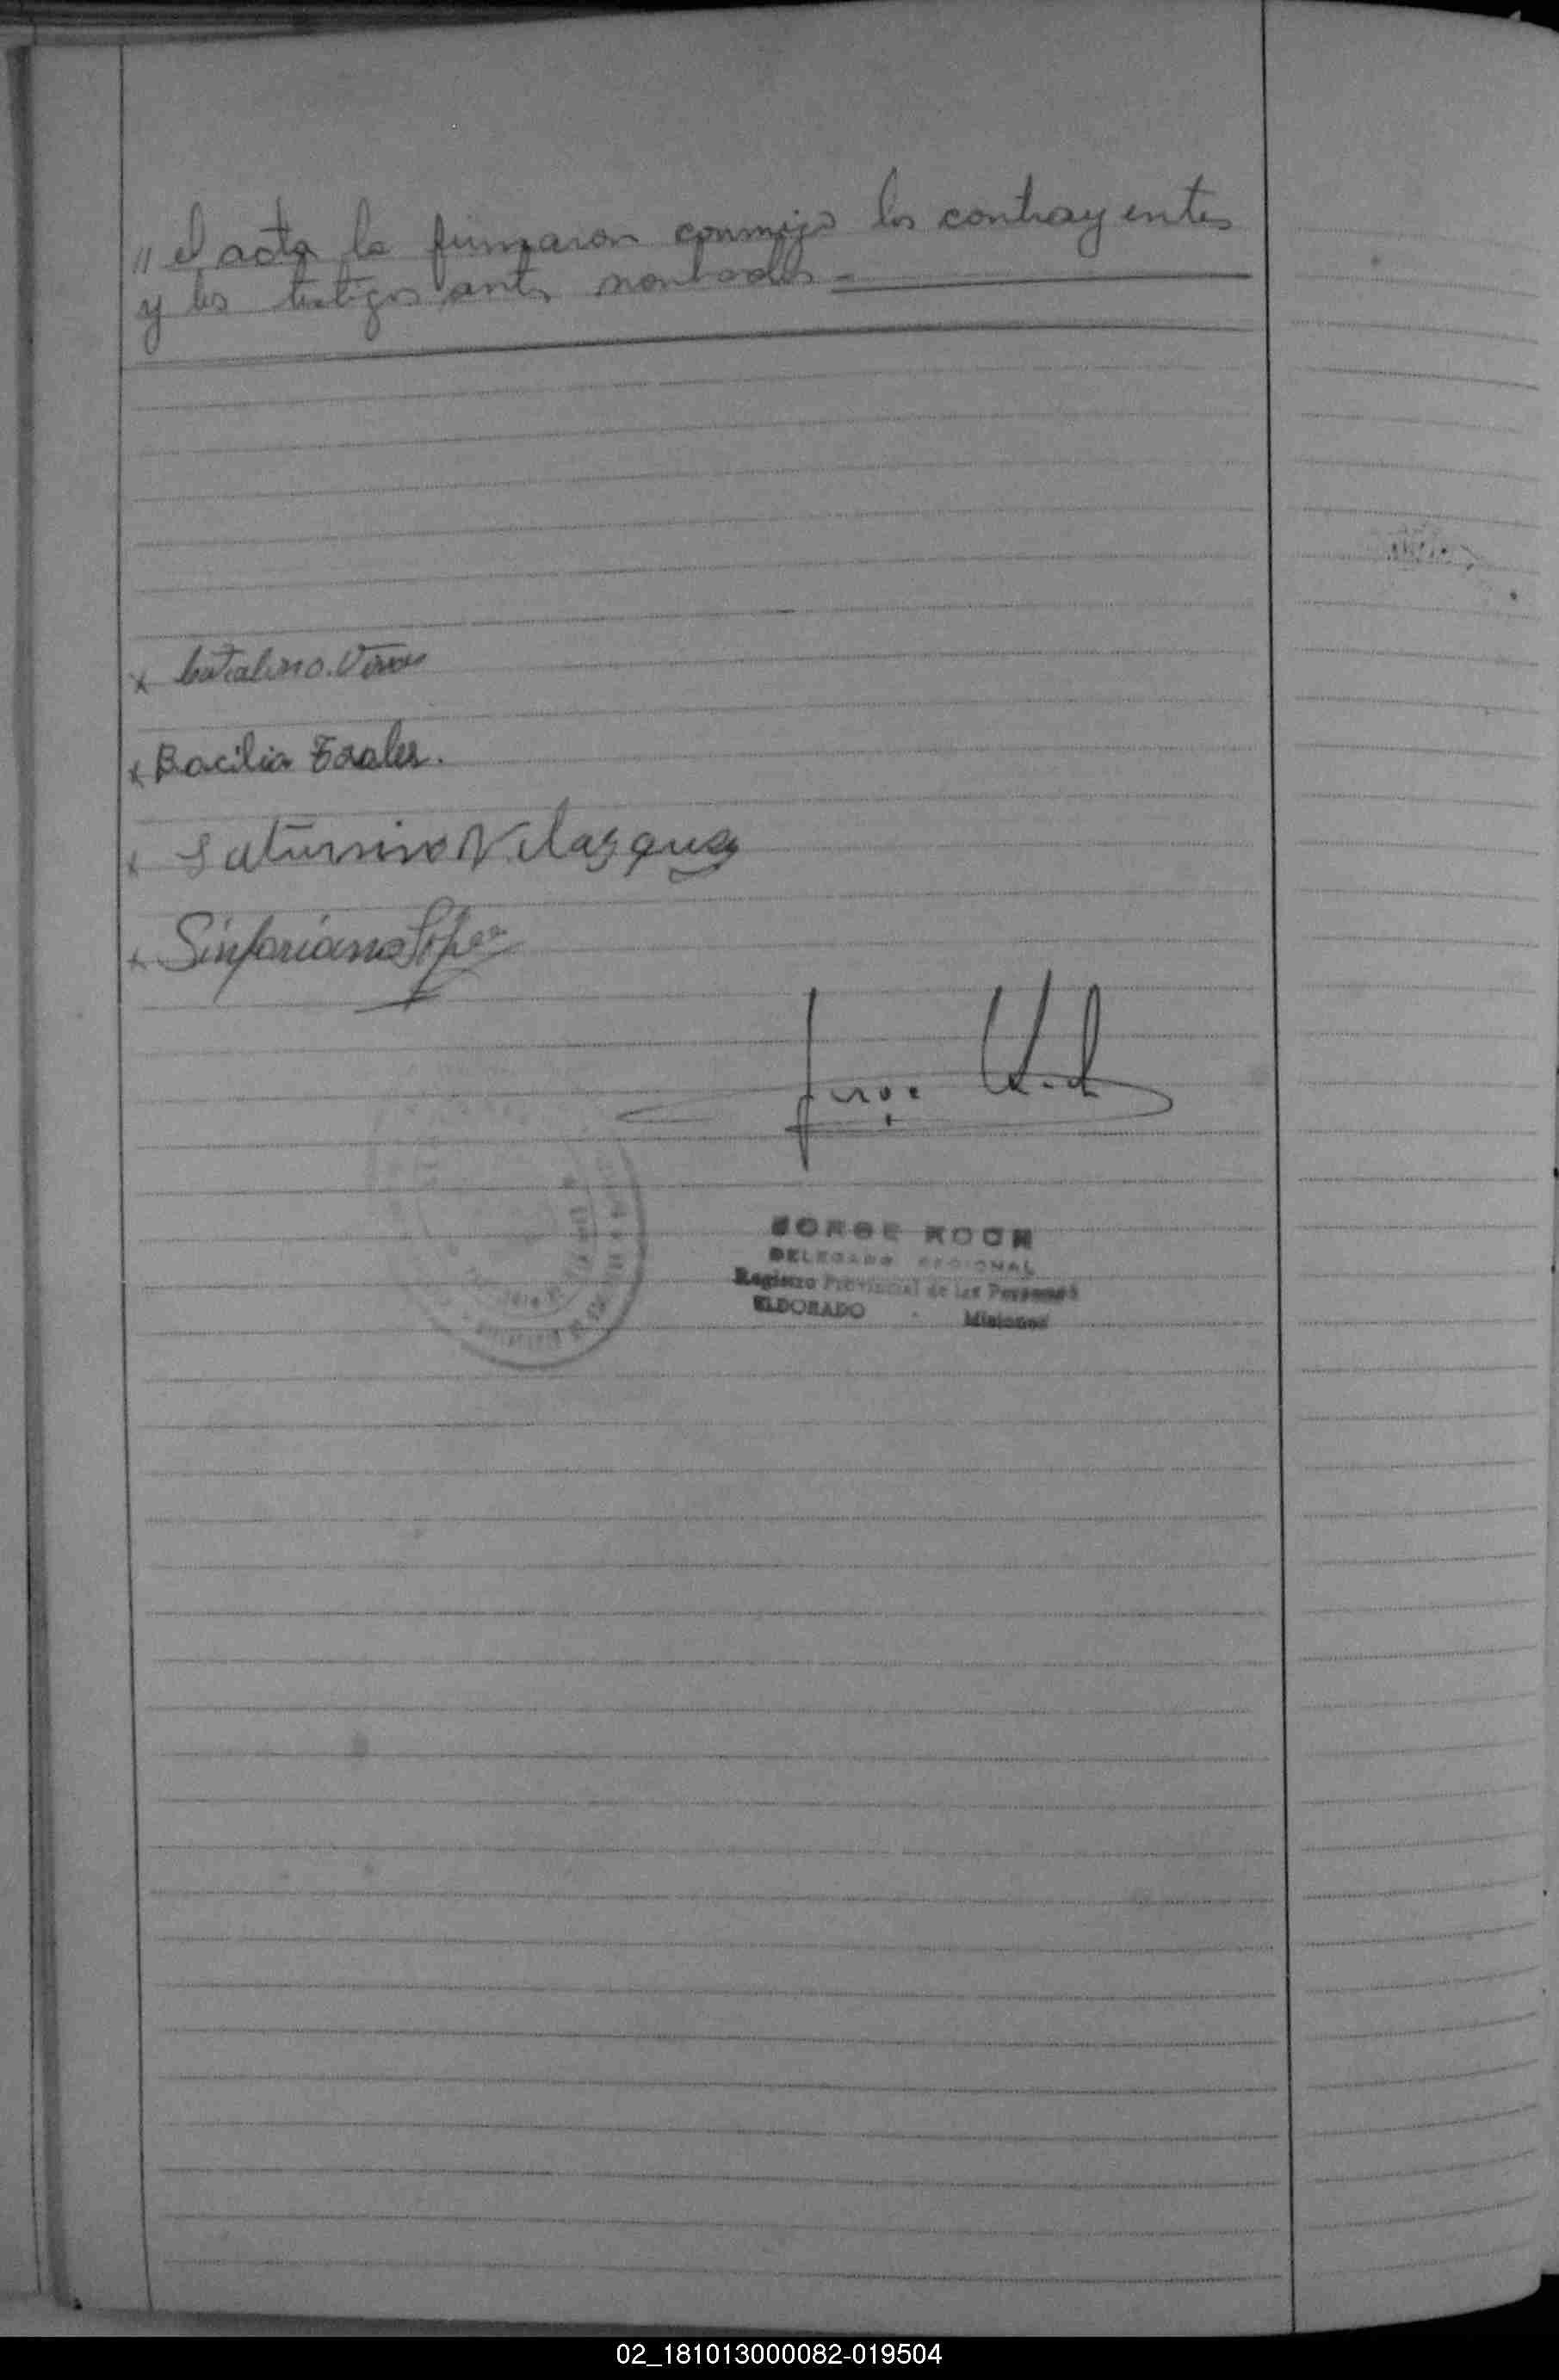 " el acta la firmaron conmigo los contrayentes
y los testigos antes nombrados -
x Catalino Vera
x Bacilia Esales.
x Saturnino Velasquez
x Sinforiano Lopez
Jorge Koch
JORGE KOCH
DELEGADO REGIONAL
Registro Provincial de las Personas
ELDORADO - Misiones
02_181013000082-019504